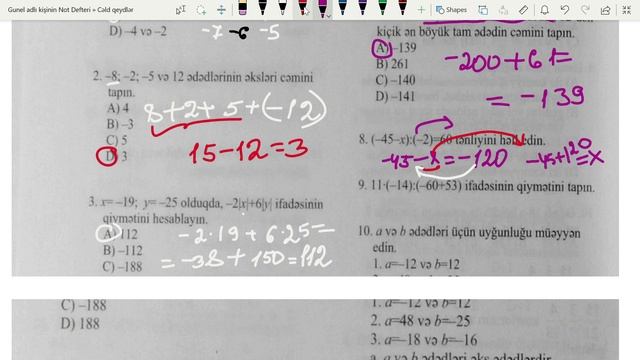 Gunel adlı kişinin Not Defteri » Cald qeydlər
Shapes
D) –4 və –2
-7 -6 -5
2. –8; –2; –5 və 12 ədədlərinin əksləri cəmini
tapın.
A) 4
B) –3
C) 5
D) 3
8+2+5+(-12)
15-12=3
3. x= –19; y= –25 olduqda, –2|x|+6|y| ifadəsinin
qiymətini hesablayın.
A) 112
B) –112
C) –188
-2·19+6·25=
=-38+150=112
C) –188
D) 188
kiçik ən böyük tam ədədin cəmini tapın.
A) –139
B) 261
C) –140
D) –141
-200+61=
=-139
8. (–45–x):(–2)=60 tənliyini həll edin.
-45-x=-120
-45+120=x
9. 11·(–14):(–60+53) ifadəsinin qiymətini tapın.
10. a və b ədədləri üçün uyğunluğu müəyyən
edin.
1. a=–12 və b=12
1. a=–12 və b=12
2. a=48 və b=–25
3. a=–18 və b=–16